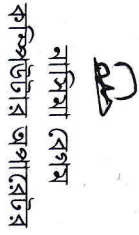 নাসিমা বেগম
কম্পিউটার অপারেটর